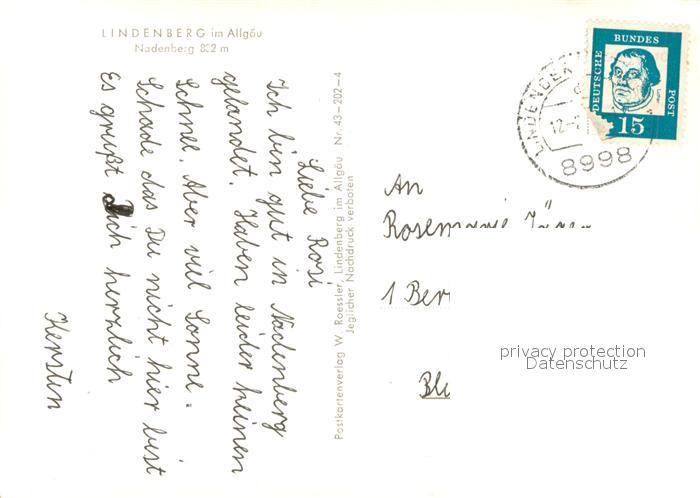 LINDENBERG im Allgäu
Nadenberg 832 m
Liebe Rosi
Ich bin gut in Nadenberg
gelandet. Haben leider keinen
Schnee. Aber viel Sonne.
Schade das Du nicht hier bist
Es grüßt Dich herzlich
Kerstin
Postkartenverlag W. Roessler, Lindenberg im Allgäu Nr. 43-202-4
Jeglicher Nachdruck verboten
DEUTSCHE
BUNDES
POST
Luther
15
LINDENBER
12.-
8998
An
Rosemarie Jäger
1 Ber
privacy protection
Datenschutz